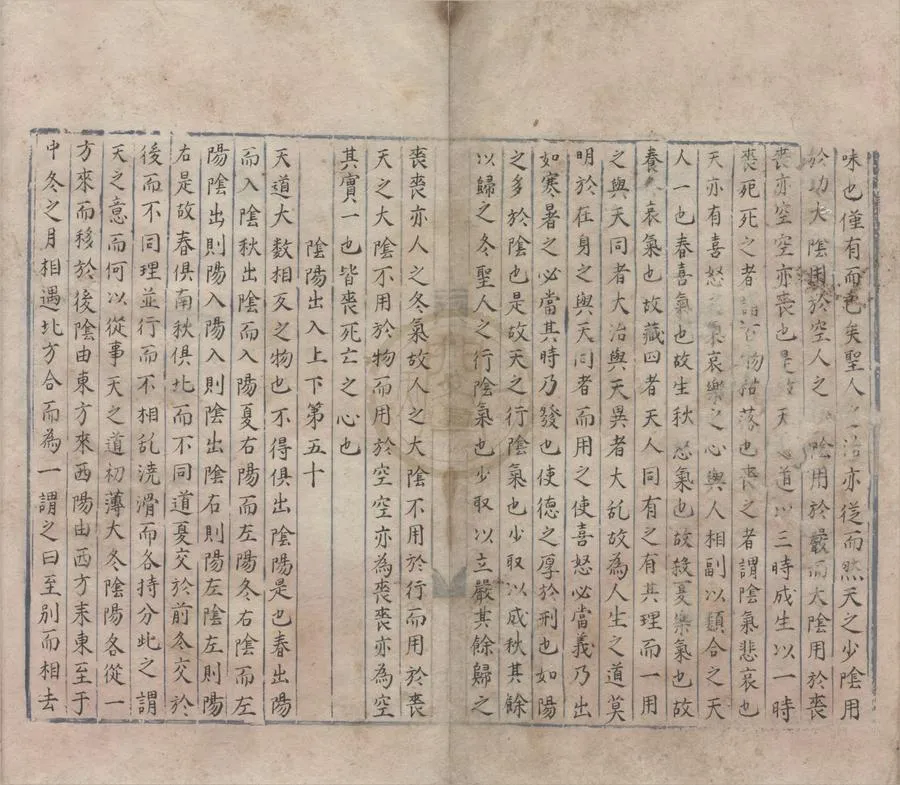 味也僅有而已矣聖人之治亦從而然天之少陰用
於功大陰用於空人之陰用於嚴而大陰用於喪
喪亦空空亦喪也是天道以三時成生以一時
喪死死之者謂百物枯落也喪之者謂陰氣悲哀也
天亦有喜怒之氣哀樂之心與人相副以類合之天
人一也春喜氣也故生秋怒氣也故殺夏樂氣也故
養哀氣也故藏四者天人同有之有其理而一用
之與天同者大治與天異者大乱故為人生之道莫
明於在身之與天同者而用之使喜怒必當義乃出
如寒暑之必當其時乃發也使德之厚於刑也如陽
之多於陰也是故天之行陰氣也少取以成秋其餘
以歸之冬聖人之行陰氣也少取以立嚴其餘歸之
喪喪亦人之冬氣故人之大陰不用於行而用於喪
天之大陰不用於物而用於空空亦為喪喪亦為空
其實一也皆喪死亡之心也
陰陽出入上下第五十
天道大數相反之物也不得俱出陰陽是也春出陽
而入陰秋出陰而入陽夏右陽而左陽冬右陰而左
陽陰出則陽入陽入則陰出陰右則陽左陰左則陽
右是故春俱南秋俱北而不同道夏交於前冬交於
後而不同理並行而不相乱澆滑而各持分此之謂
天之意而何以從事天之道初薄大冬陰陽各從一
方來而移於後陰由東方來西陽由西方来東至于
中冬之月相遇北方合而為一謂之曰至别而相去